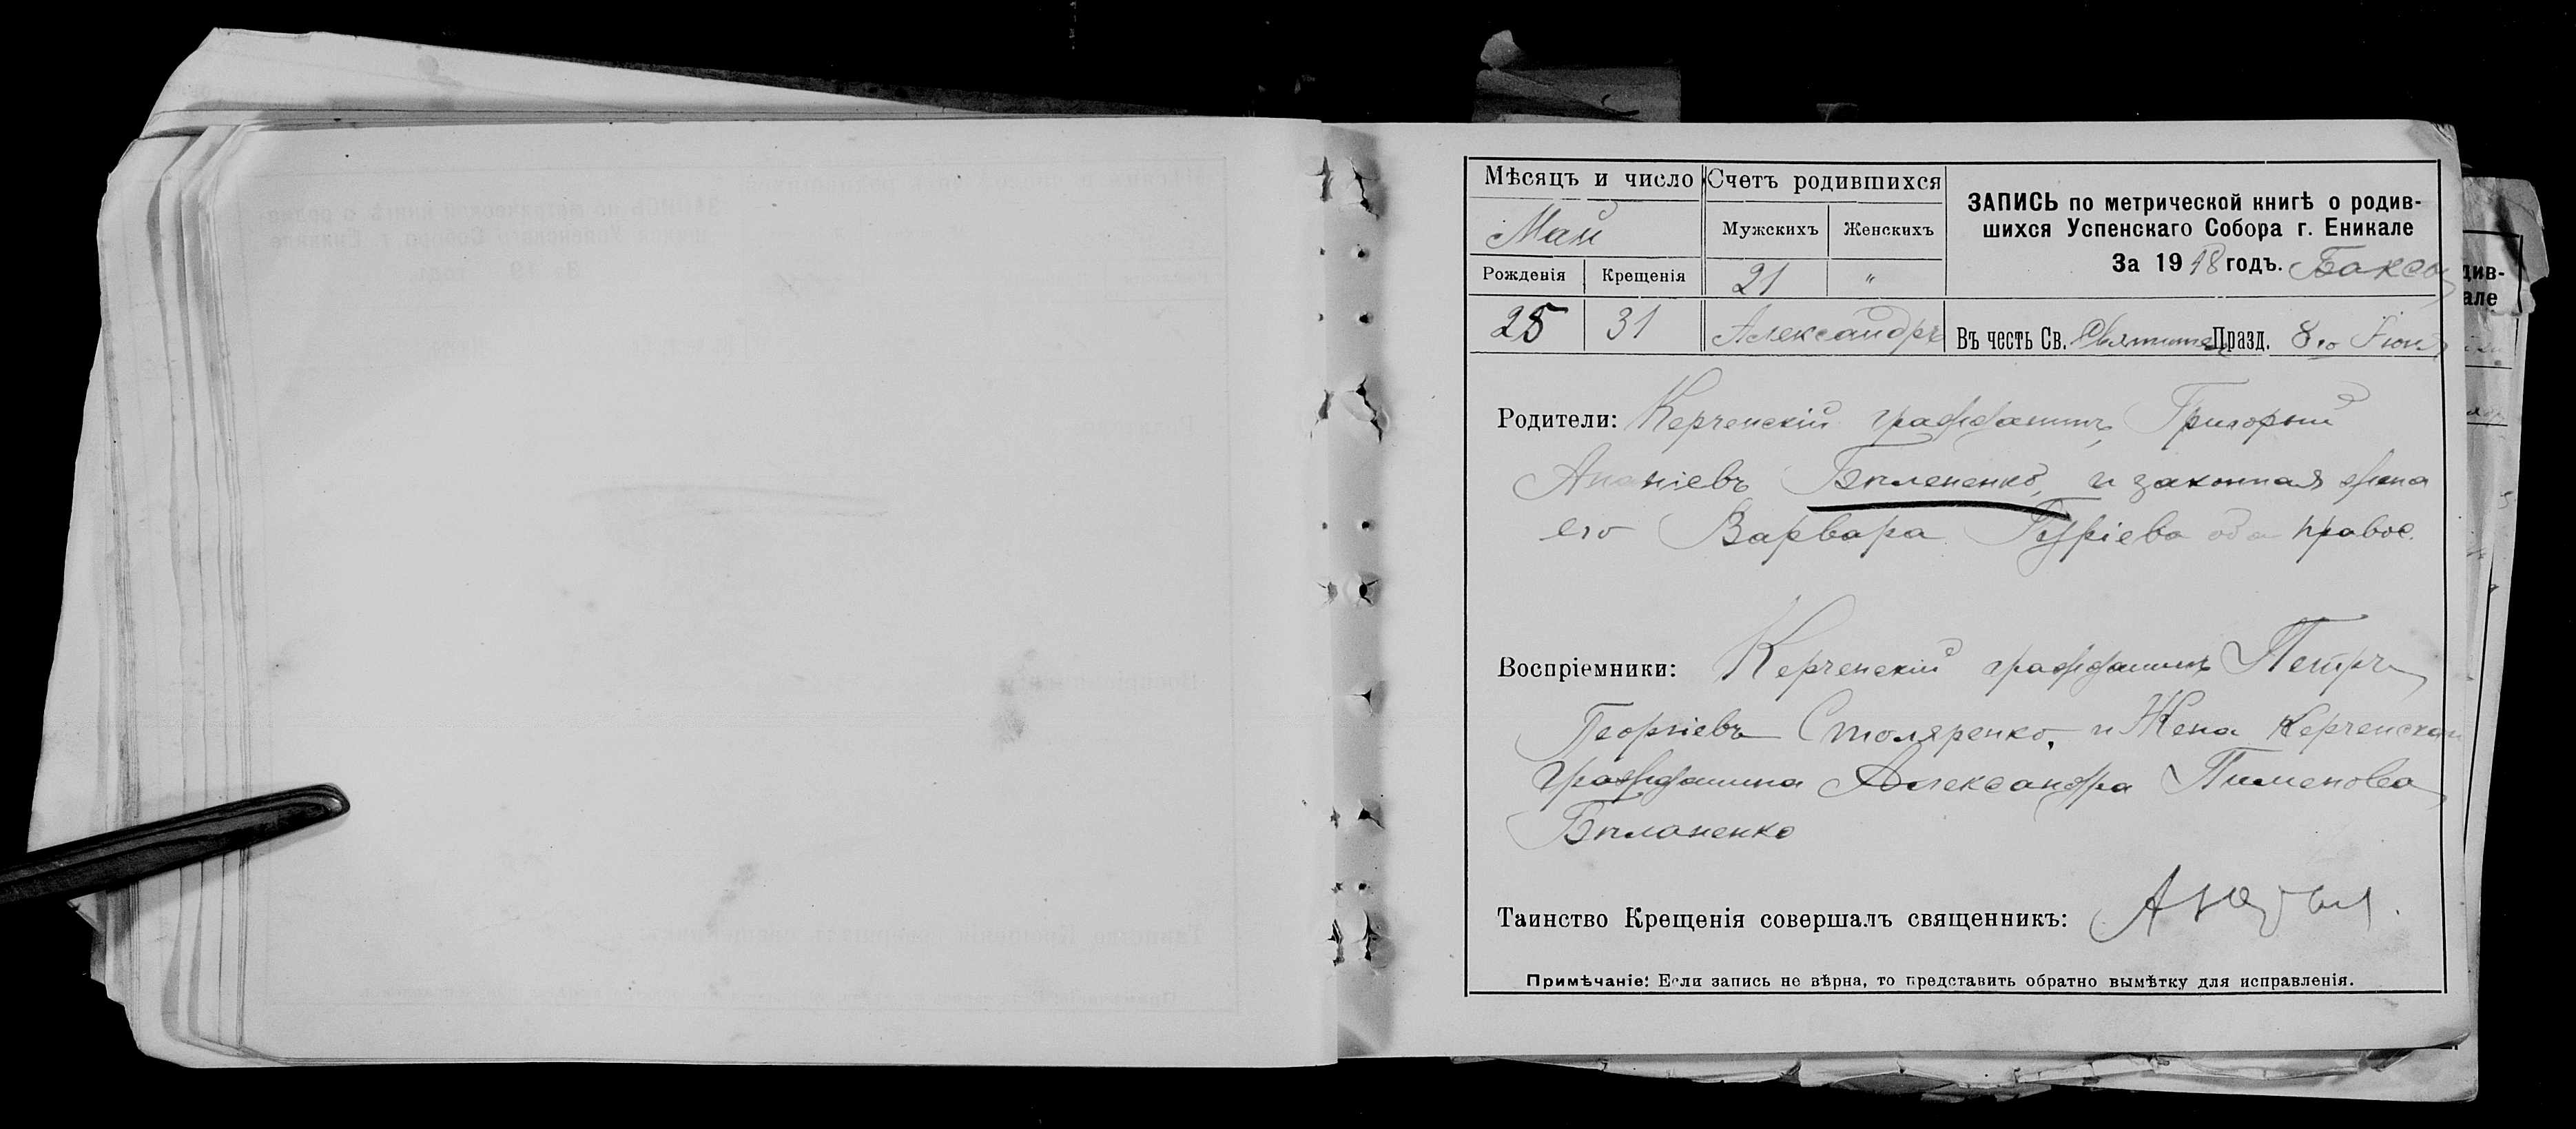 Мѣсяцъ и число
Май
Рожденія Крещенія
25 31
Счетъ родившихся
Мужскихъ Женскихъ
21 "
Александръ
ЗАПИСЬ по метрической книгѣ о родив-
шихся Успенскаго Собора г. Еникале
За 1918 годъ. Баксы
Въ честь Св. Празд. 8го Іюня
Родители: Керченскій гражданинъ Григорий
Ананіевъ Бѣлененко, и законная жена
его Варвара Гуріева оба правос.
Воспріемники: Керченскій гражданинъ Петръ
Георгіевъ Столяренко, и Жена Керченскаго
гражданина Александра Пименова
Бѣланенко
Таинство Крещенія совершалъ священникъ:
Примѣчаніе: Если запись не вѣрна, то представить обратно вымѣтку для исправленія.
див-
але